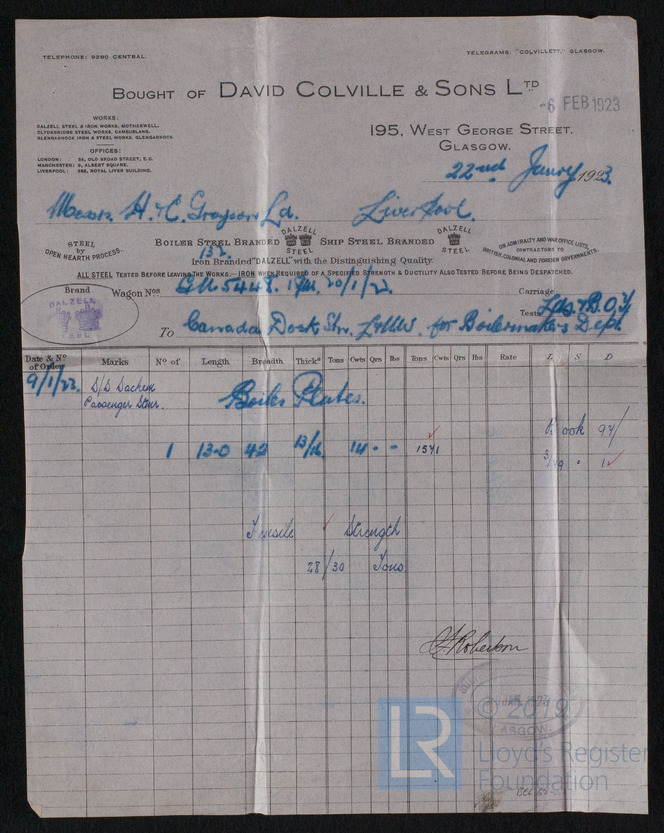 TELEPHONE: 9280 CENTRAL.
TELEGRAMS: "COLVILLETT," GLASGOW.
BOUGHT OF DAVID COLVILLE & SONS LTD
-6 FEB 1923
WORKS:
DALZELL STEEL & IRON WORKS, MOTHERWELL.
CLYDEBRIDGE STEEL WORKS, CAMBUSLANG.
GLENGARNOCK IRON & STEEL WORKS, GLENGARNOCK.
OFFICES:
LONDON: 34, OLD BROAD STREET, E.C.
MANCHESTER: 6, ALBERT SQUARE.
LIVERPOOL: ROYAL LIVER BUILDING.
195, WEST GEORGE STREET,
GLASGOW.
22nd Janry 1923.
Messrs. H. & C. Grayson Ld. Liverpool.
STEEL BY OPEN HEARTH PROCESS.
BOILER STEEL BRANDED DALZELL STEEL SHIP STEEL BRANDED DALZELL STEEL
ON ADMIRALTY AND WAR OFFICE LISTS, CONTRACTORS TO BRITISH, COLONIAL AND FOREIGN GOVERNMENTS.
Iron Branded "DALZELL" with the Distinguishing Quality.
ALL STEEL TESTED BEFORE LEAVING THE WORKS.—IRON WHEN REQUIRED OF A SPECIFIED STRENGTH & DUCTILITY ALSO TESTED BEFORE BEING DESPATCHED.
Brand
DALZELL
STEEL
Wagon Nos 5448. 20/1/23.
Carriage
Tests
To Canada Dock Stn. L&NW. for Boilermakers Dept.
Date & No of Order Marks No of Length Breadth Thicks Tons Cwts Qrs lbs Tons Cwts Qrs lbs Rate L S D
9/1/23. S/S Sachem
Passenger Stmr.
Boiler Plates.
1 13-0 42 13/16 14 - - 1571
Tensile Strength
28/30 Tons
Robertson
© 2019
LR
Lloyd's Register
Foundation